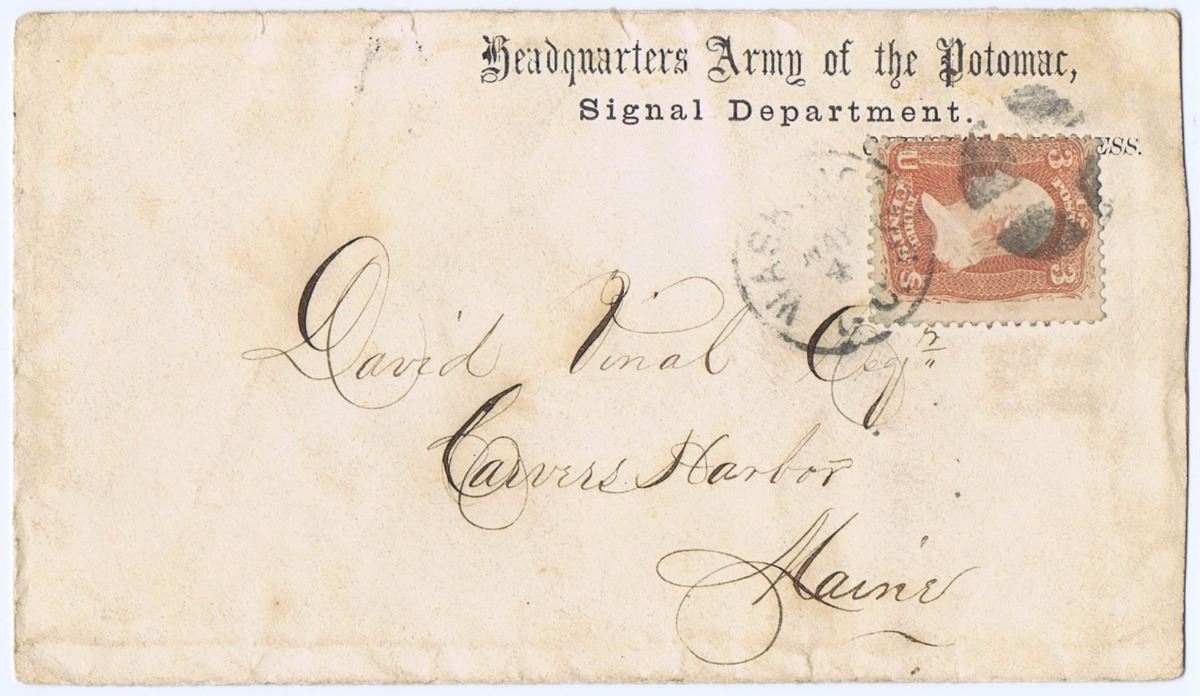 Headquarters Army of the Potomac,
Signal Department.
ESS.
WASH
MAY
4
3 3
U S
POSTAGE
THREE CENTS
David Vinal Esqr
Carvers Harbor
Maine